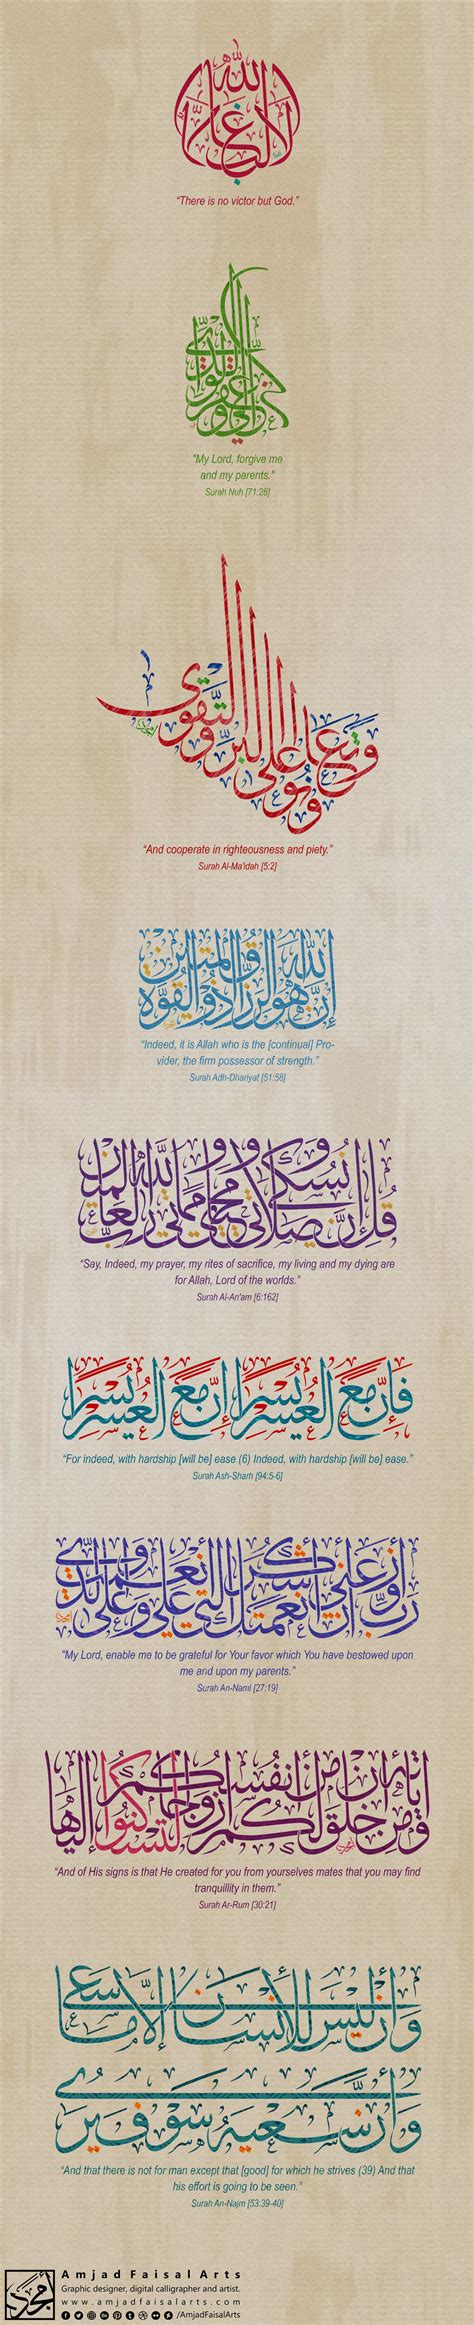 لا غالب إلا الله
“There is no victor but God.”
رب اغفر لي ولوالدي
"My Lord, forgive me
and my parents."
Surah Nuh [71:28]
وتعاونوا على البر والتقوى
“And cooperate in righteousness and piety.”
Surah Al-Ma'idah [5:2]
إن الله هو الرزاق ذو القوة المتين
“Indeed, it is Allah who is the [continual] Pro-
vider, the firm possessor of strength.”
Surah Adh-Dhariyat [51:58]
قل إن صلاتي ونسكي ومحياي ومماتي لله رب العالمين
“Say, Indeed, my prayer, my rites of sacrifice, my living and my dying are
for Allah, Lord of the worlds.”
Surah Al-An'am [6:162]
فإن مع العسر يسرا إن مع العسر يسرا
“For indeed, with hardship [will be] ease (6) Indeed, with hardship [will be] ease.”
Surah Ash-Sharh [94:5-6]
رب أوزعني أن أشكر نعمتك التي أنعمت علي وعلى والدي
"My Lord, enable me to be grateful for Your favor which You have bestowed upon
me and upon my parents."
Surah An-Naml [27:19]
ومن آياته أن خلق لكم من أنفسكم أزواجا لتسكنوا إليها
“And of His signs is that He created for you from yourselves mates that you may find
tranquillity in them.”
Surah Ar-Rum [30:21]
وأن ليس للإنسان إلا ما سعى
وأن سعيه سوف يرى
“And that there is not for man except that [good] for which he strives (39) And that
his effort is going to be seen.”
Surah An-Najm [53:39-40]
Amjad Faisal Arts
Graphic designer, digital calligrapher and artist.
www.amjadfaisalarts.com
/AmjadFaisalArts